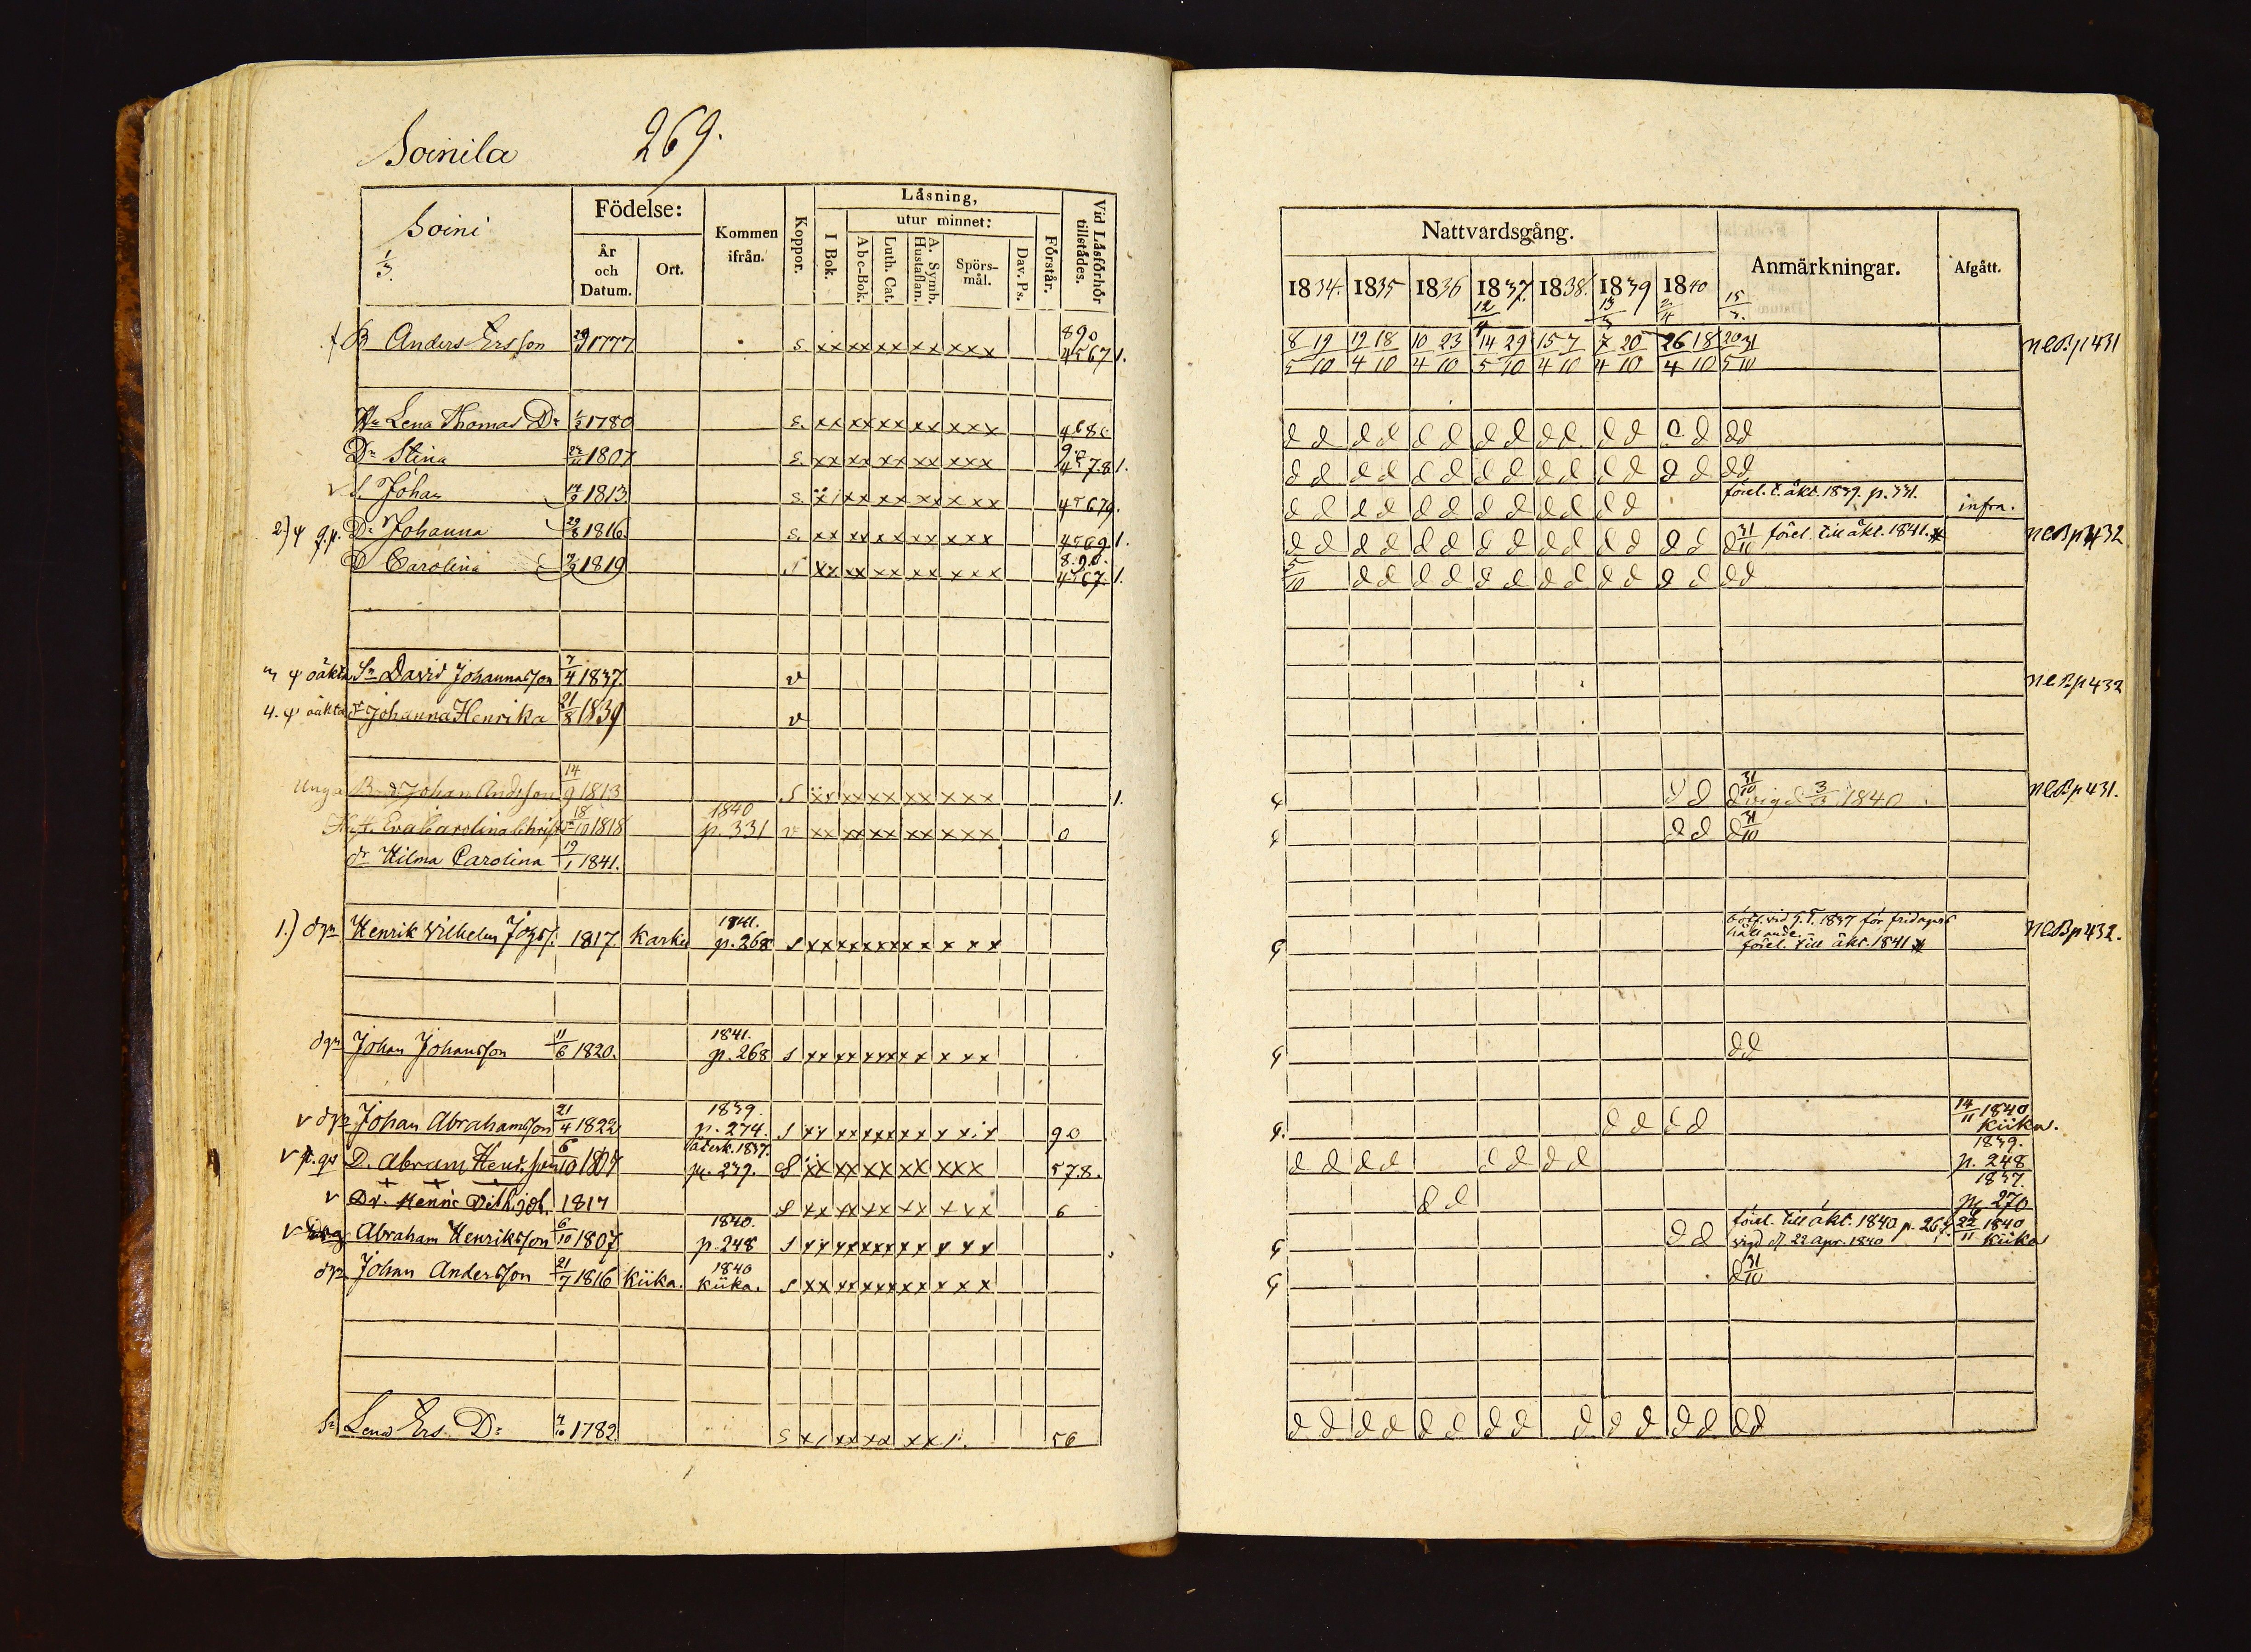 Soinila 269.
Soini
1/3.
Födelse:
År och Datum.
Ort.
Kommen ifrån.
Koppor.
Låsning,
I Bok.
utur minnet:
Abc-Bok.
Luth. Cat.
A. Symb. Hustaflan.
Spörsmål.
Dav. Ps.
Förstår.
Vid Låsförhör tillstådes.
Nattvardsgång.
1834. 1835 1836 1837. 1838. 1839 1840
12/4 2/4 15/3.
Anmärkningar.
Afgått.
B Anders Ersson 1777 s. xx xx xx xx xxx 890 4567 1.
8/5 19/10 12/4 18/10 10/4 23/10 14/5 29/10 15/4 7/10 20/10 26/4 18/10 20/5 31/10 neBp431
Lena Thomas Dr 1780 s. xx xx xx xx xxx
d d d d d d d d d d d d d d d
Dr Stina 1807 s. xx xx xx xx xxx 4578 1.
d d d d d d d d d d d d d d d d
v S. Johan 14/9 1813 s. 45679.
d d d d d d d d d d d d förel. t. äkt. 1839. p. 331. infra.
2) Dr Johanna 29/8 1816 s. xx xx xx xx xxx 4569 1.
d d d d d d d d d d d d d d d 31/10 förel. till äkt. 1841. neBp432
D Carolina 1819 xx xx xx xx xxx 8.90. 4567. 1.
5/10 d d d d d d d d d d d d d d
oäkta Sn David Johannasson 7/4 1837. v
neBp432
4. oäkta Johanna Henrika 21/8 1839 v
unga B Johan Andersson 14/9 1813 s xx xx xx xx xxx 1.
d d d 31/10 vigd 3/3 1840 neBp431.
H. Eva Carolina Christ 18/10 1818 1840 p. 331 v xx xx xx xx xxx 0
d d d 31/10
dr Hilma Carolina 19/1 1841.
1.) dgn Henrik Wilhelm 1817 Karku 1841. p. 268 s xx xx xx xx x x x
1837 för fridagars hållande. förel. till äkt. 1841 neBp432.
dgn Johan Johansson 11/6 1820. 1841. p. 268 s xx xx xx xx x xx
dd
v dgn Johan Abrahamsson 21/4 1822 1839. p. 274. s xx xx xx xx 90
d d d d 14/11 1840 Kiika.
v D. Abram Henr.son 6/10 1807 1837. p. 239. xx xx xx xx xxx 578.
d d d d d d d d 1839. p. 248
v Dr. Henric 1817 xx xx xx xx xxx 6
d d 1837. pg 270
v Abraham Henriksson 6/10 1807 1840. p. 248 s xx xx xx xx xxx
d d förel. till äkt. 1840 p. 267. vigd d. 22 apr. 1840 22/11 1840 Kiika
dgn Johan Andersson 21/7 1816 Kiika. 1840 Kiika. s xx xx xx xx xxx
d 31/10
Lena Ers Dr 1782 s 56
d d d d d d d d d d d d d d d